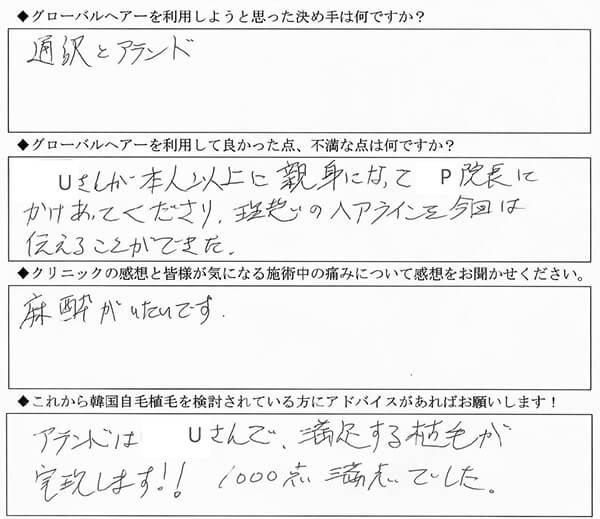 ◆グローバルヘアーを利用しようと思った決め手は何ですか？
通訳とアランド
◆グローバルヘアーを利用して良かった点、不満な点は何ですか？
Uさんが本人以上に親身になって P院長に
かけあってくださり、理想の入アラインを今回は
伝えることができた。
◆クリニックの感想と皆様が気になる施術中の痛みについて感想をお聞かせください。
麻酔がいたいです.
◆これから韓国自毛植毛を検討されている方にアドバイスがあればお願いします！
アランドは Uさんで、満足する植毛が
実現します!! 1000点満点でした。